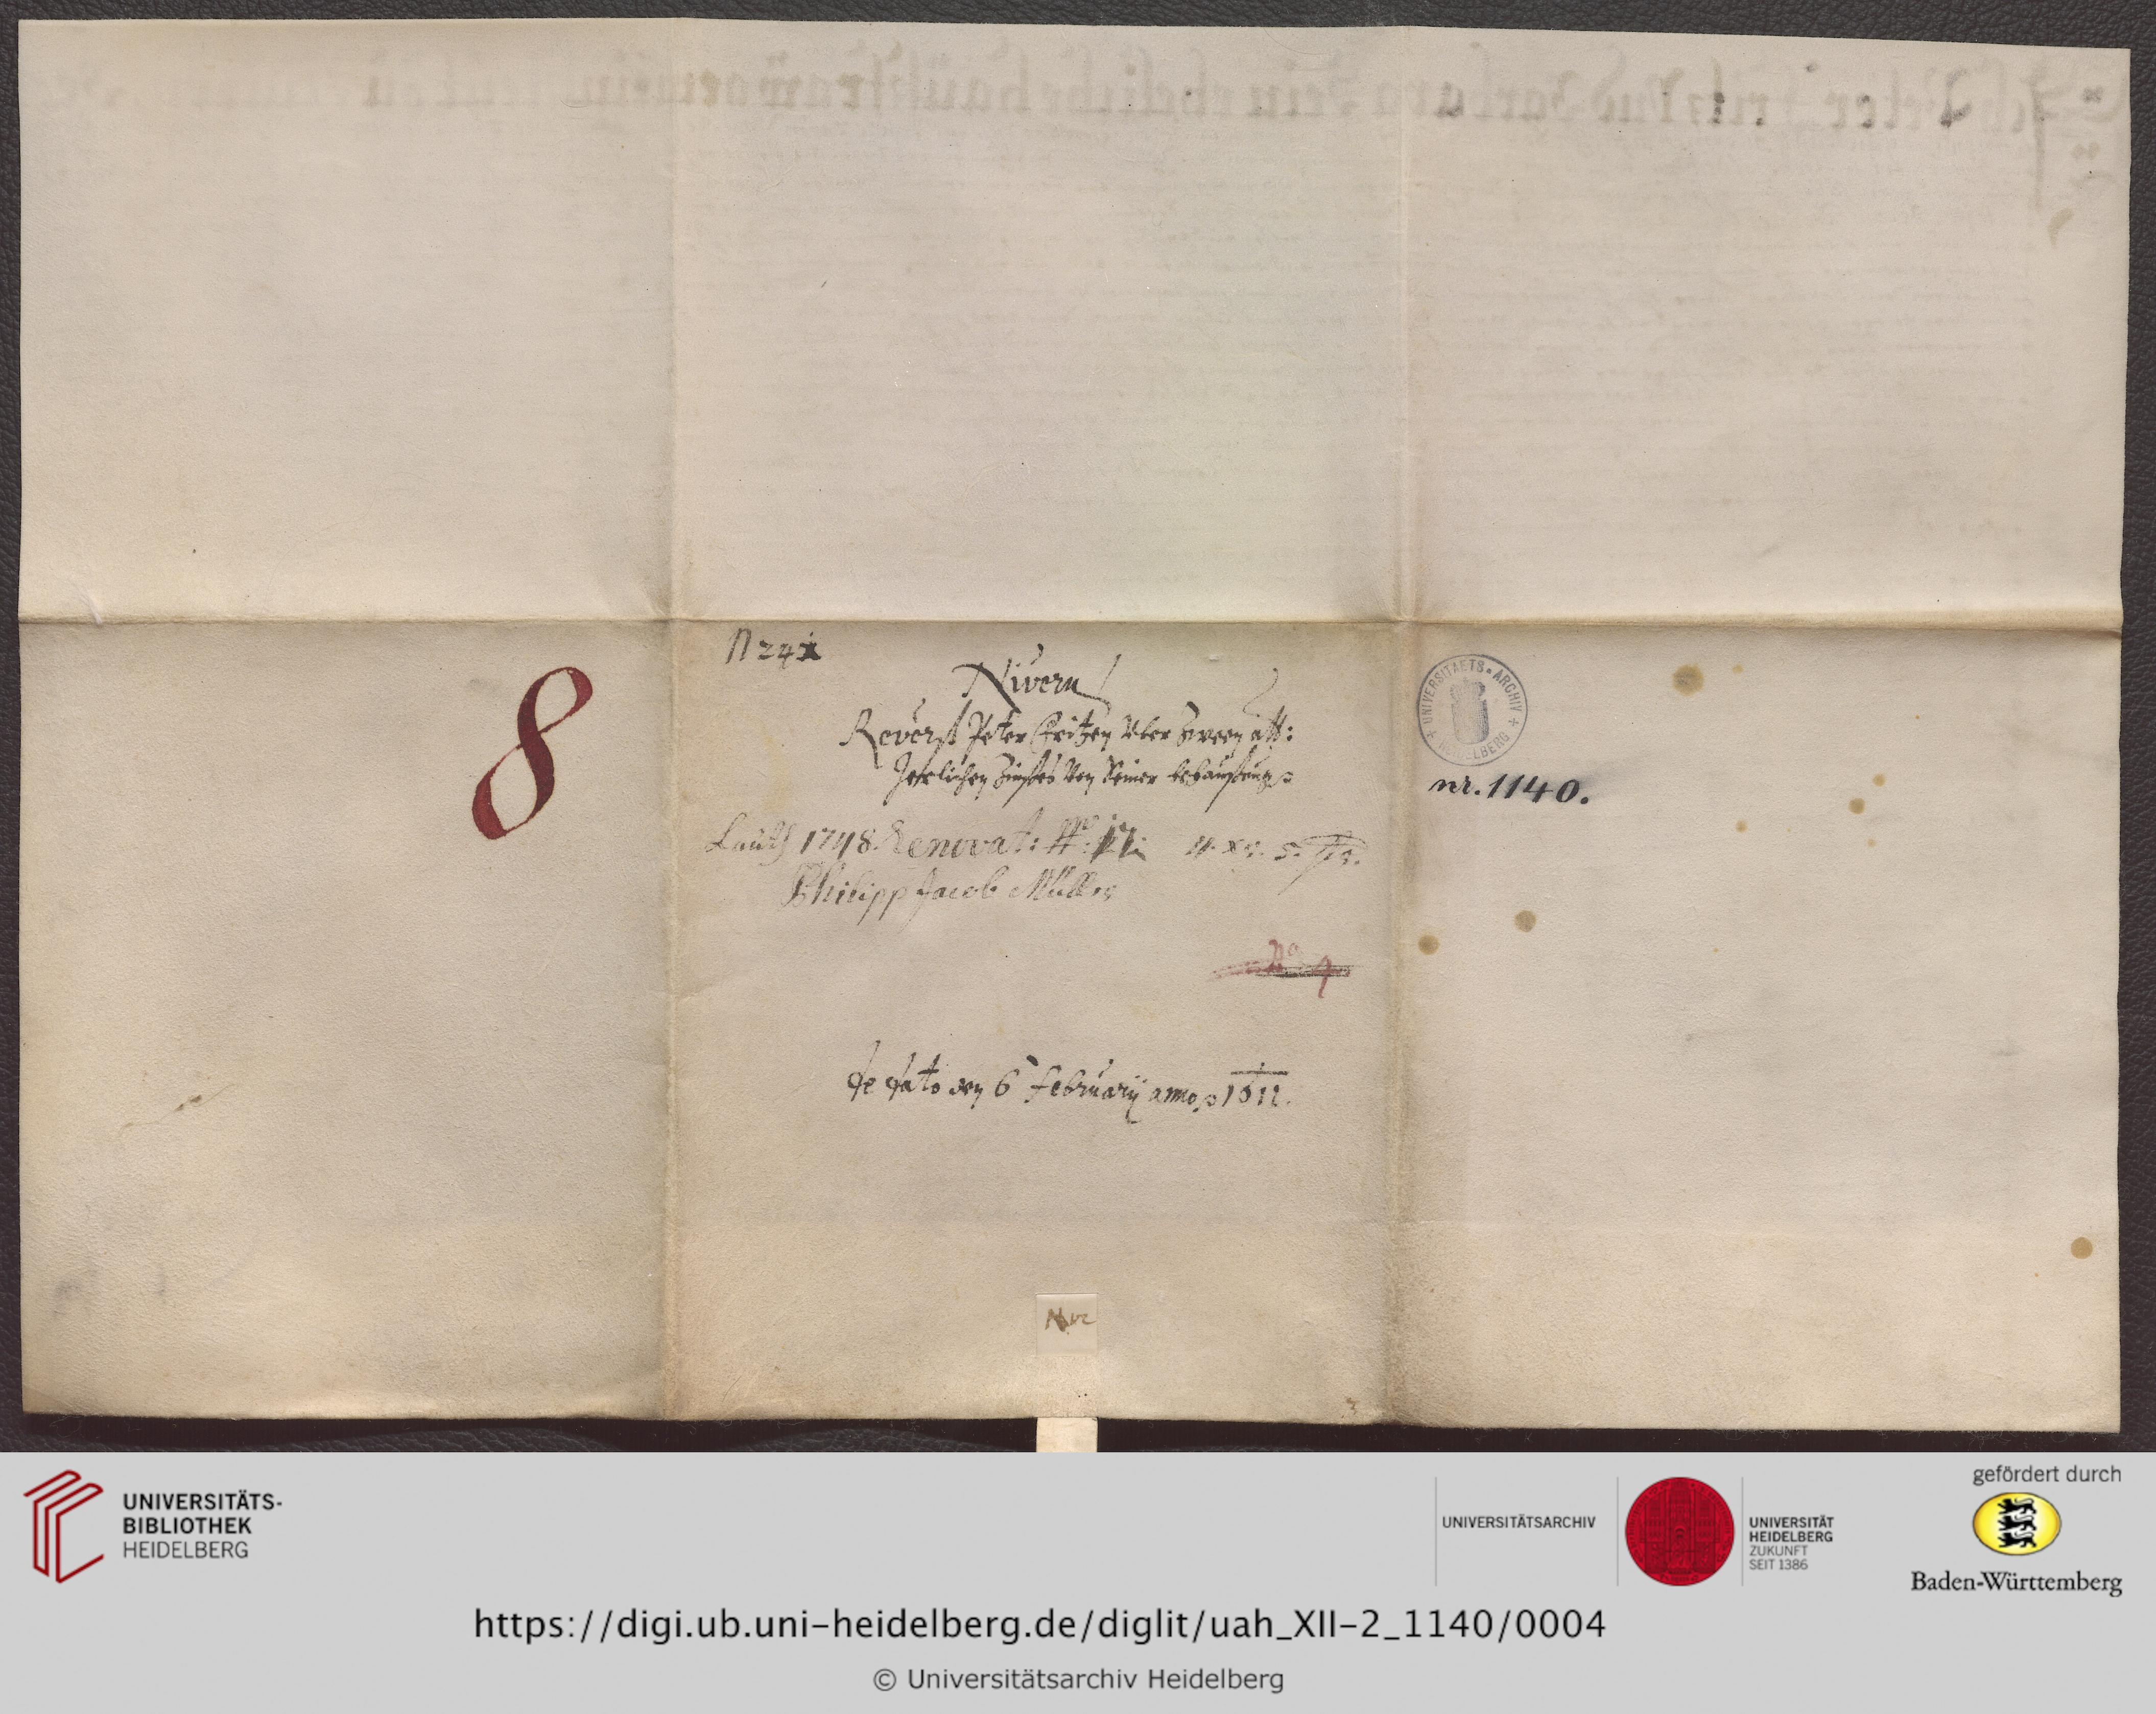 N 24
Nivern
Reverß Peter Fritzen Uber Zween alb:
Jerlichen Zinses Von Seiner behausung
Lauth 1748. Renovat: 17.
Philipp Jacob Müller
8
No 4
de dato den 6 February anno 1611.
Niv
UNIVERSITAETS-ARCHIV
HEIDELBERG
nr. 1140.
UNIVERSITÄTS-
BIBLIOTHEK
HEIDELBERG
UNIVERSITÄTSARCHIV
UNIVERSITÄT
HEIDELBERG
ZUKUNFT
SEIT 1386
gefördert durch
Baden-Württemberg
https://digi.ub.uni-heidelberg.de/diglit/uah_XII-2_1140/0004
© Universitätsarchiv Heidelberg